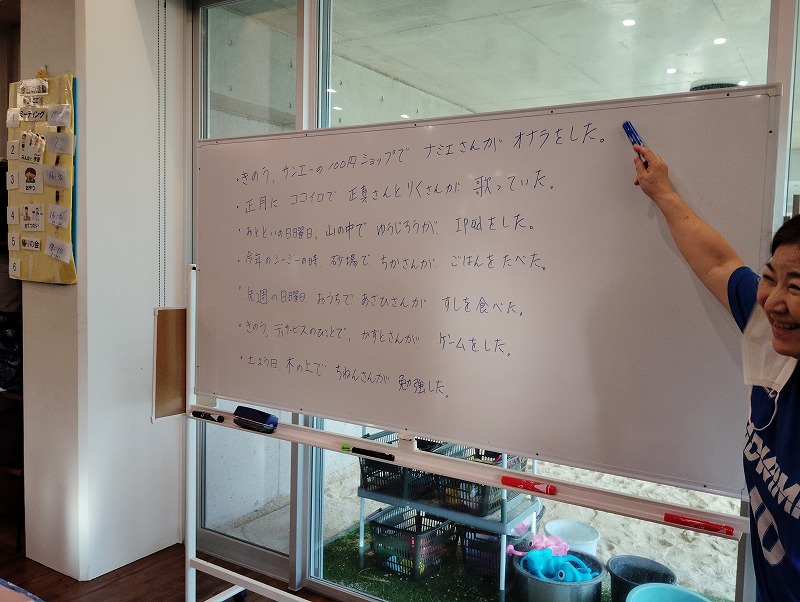 ミーティング
2
3
おやつ
4
おてつだい
5
帰りの会
6
・きのう、サンエーの100円ショップで ナミエさんが オナラをした。
・正月に ココイロで 正真さんとりくさんが 歌っていた。
・おとといの日曜日、山の中で ゆうじろうが IPadをした。
・今年のシーミーの時、砂場で ちかさんが ごはんをたべた。
・先週の日曜日、おうちで あさひさんが すしを食べた。
・きのう、デイサービスのひとことで、かずとさんが ゲームをした。
・土よう日、木の上で ちねんさんが 勉強した。
10